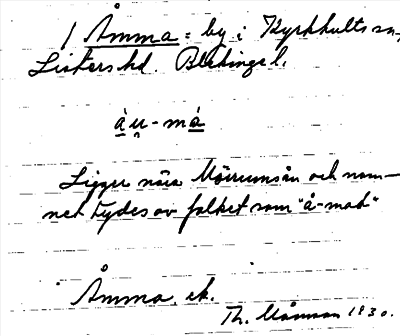 / Åmma = by i Kyrkhults sn,
Listers hd. Blekinge l.
àu̯-má
Ligger nära Mörrumsån och nam-
net tydes av folket som "å-mad"
Åmma. ek.
Th. Månsson 1930.